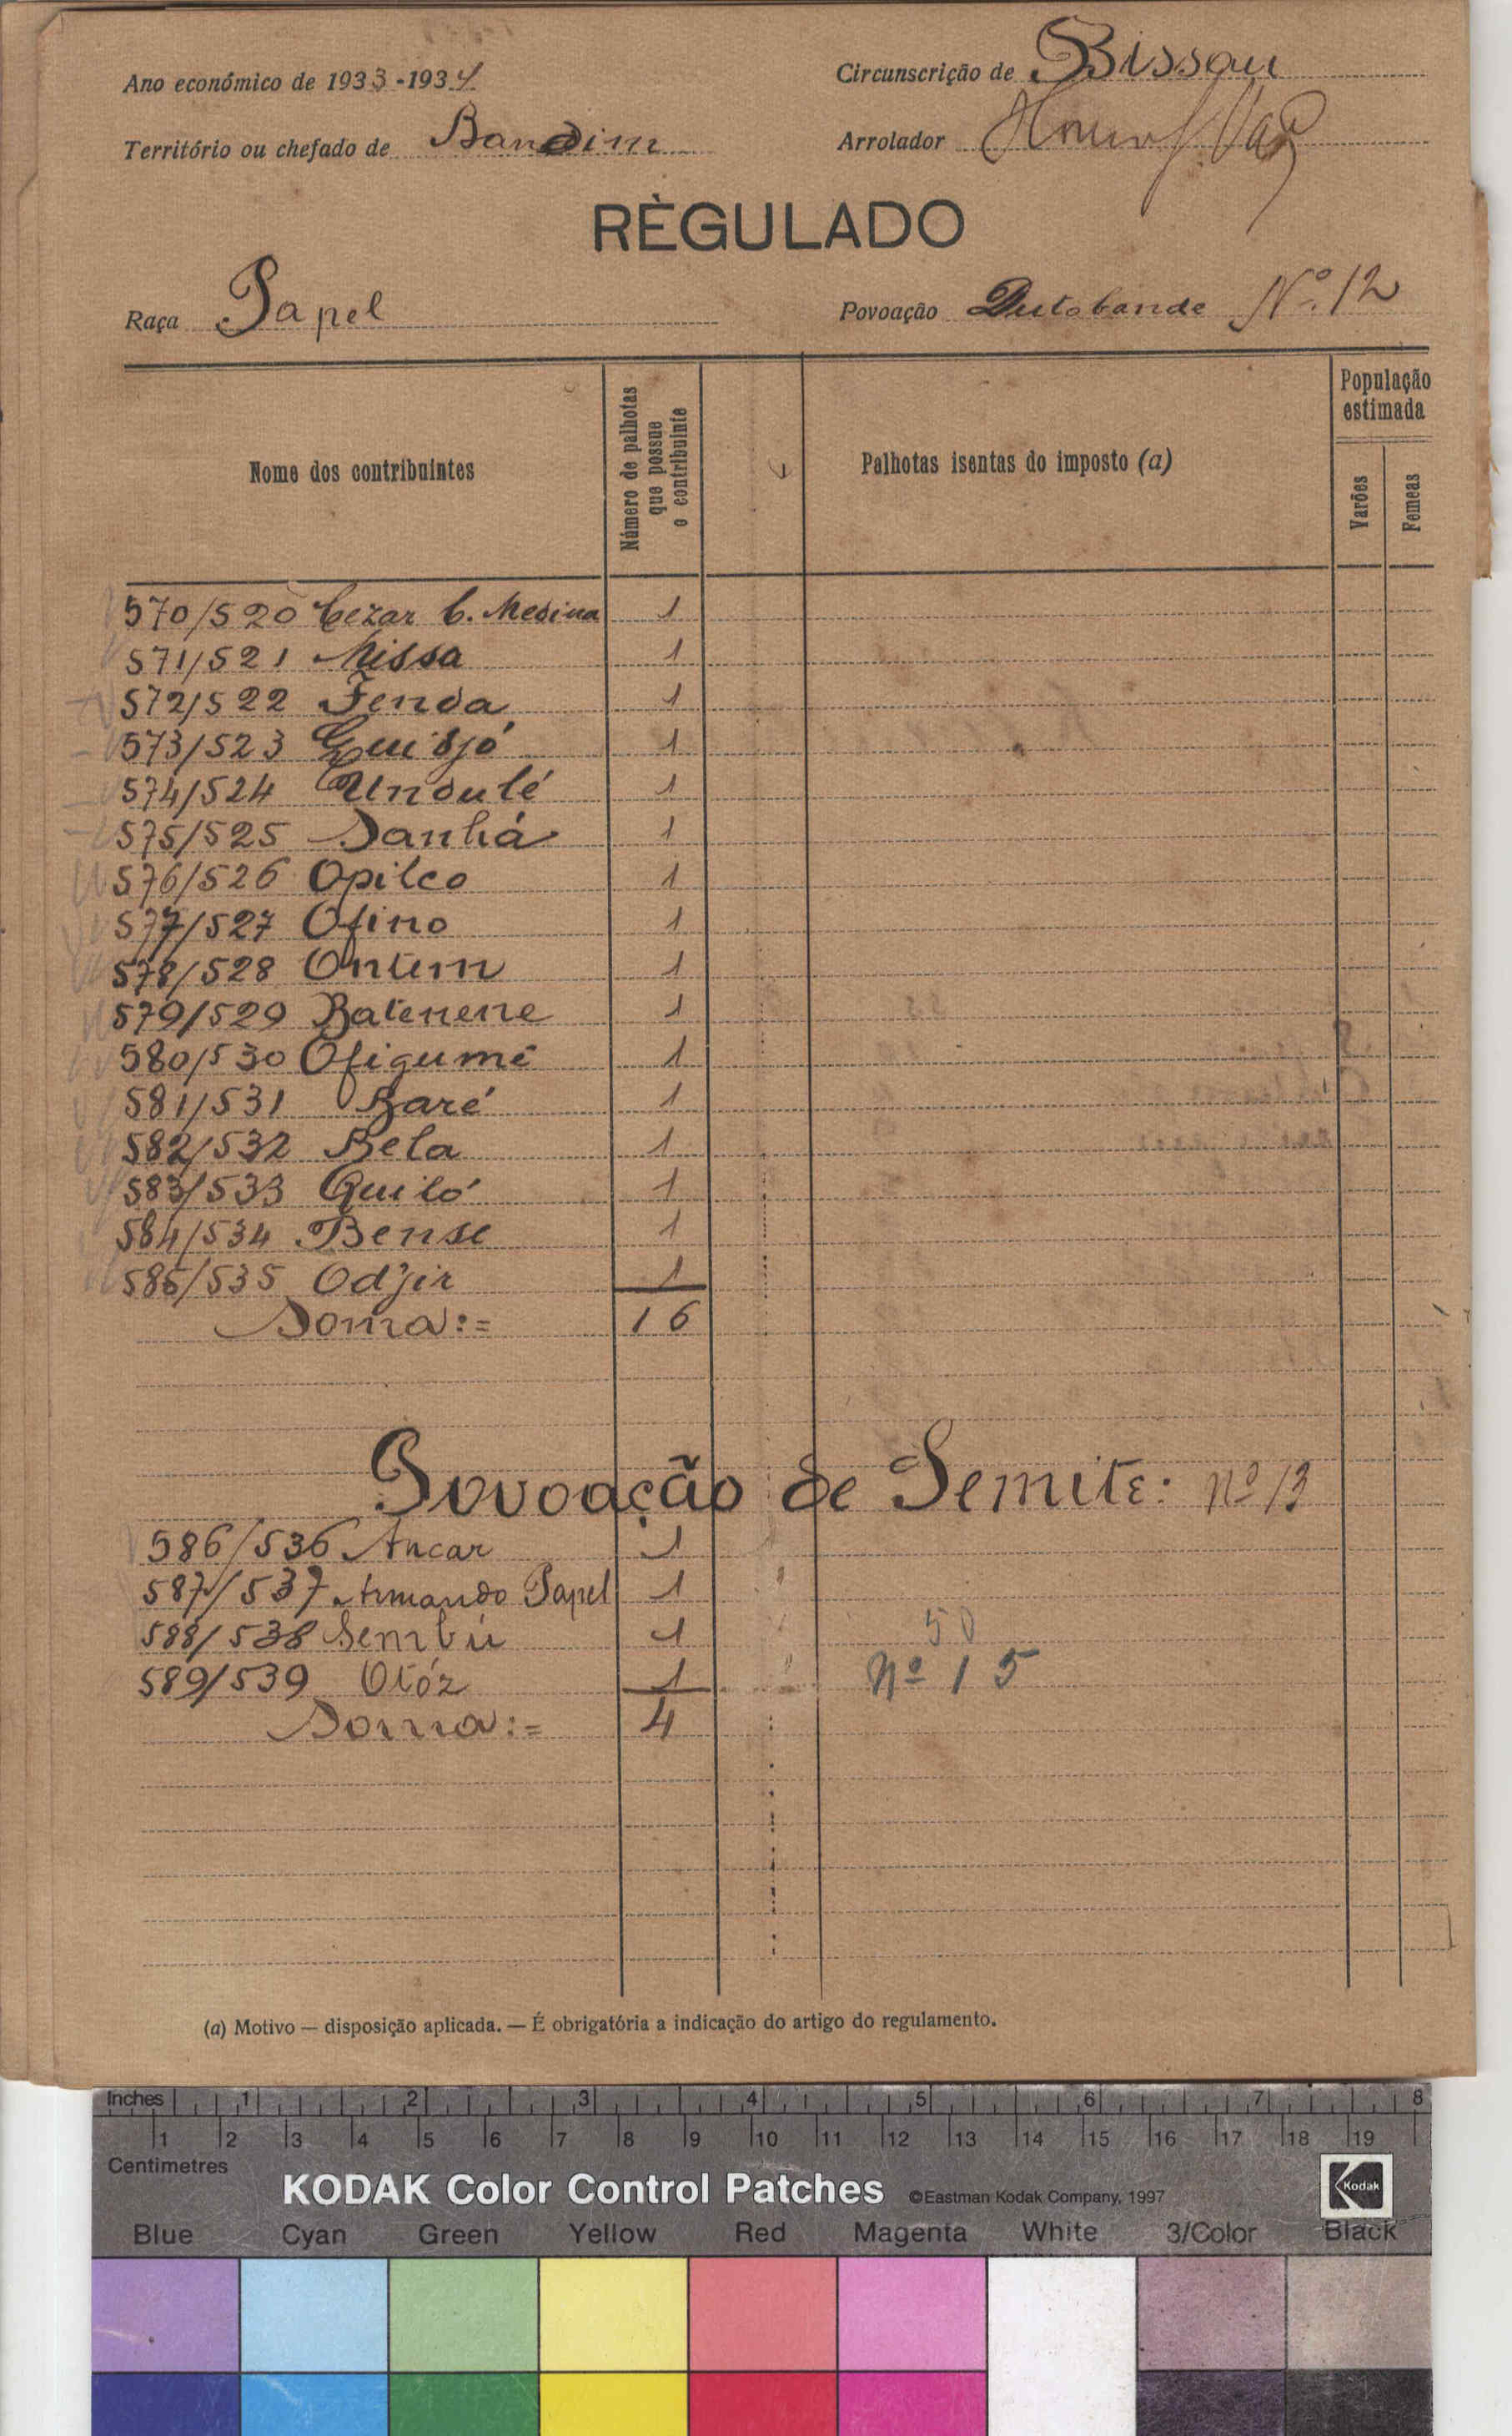 Ano económico de 1933-1934
Circunscrição de Bissau
Território ou chefado de Bandim
Arrolador Vaz
RÈGULADO
Raça Papel
Povoação Dutobande Nº 12
Nome dos contribuintes
Número de palhotas que possue o contribuinte
Palhotas isentas do imposto (a)
População estimada
Varões
Femeas
570/520 Cezar C. Medina 1
571/521 Missa 1
572/522 Fenda 1
573/523 Guidjó 1
574/524 Undulé 1
575/525 Sanhá 1
576/526 Opilco 1
577/527 Ofino 1
578/528 Ontem 1
579/529 Batenene 1
580/530 Ofigumé 1
581/531 Baré 1
582/532 Bela 1
583/533 Quiló 1
584/534 Bense 1
585/535 Odjir 1
Soma:= 16
Povoação de Semite: nº 13
586/536 Ancar 1
587/537 Armando Papel 1
588/538 Sembú 1
50
589/539 Otóz 1
Nº 15
Soma:= 4
(a) Motivo — disposição aplicada. — É obrigatória a indicação do artigo do regulamento.
Inches 1 2 3 4 5 6 7 8
1 2 3 4 5 6 7 8 9 10 11 12 13 14 15 16 17 18 19
Centimetres
KODAK Color Control Patches ©Eastman Kodak Company, 1997 Kodak
Blue Cyan Green Yellow Red Magenta White 3/Color Black